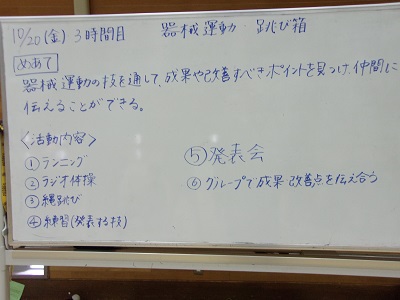 10/20(金) 3時間目 器械運動 跳び箱
めあて
器械運動の技を通して、成果や改善すべきポイントを見つけ、仲間に
伝えることができる。
〈活動内容〉
①ランニング
②ラジオ体操
③縄跳び
④練習(発表する技)
⑤発表会
⑥グループで成果 改善点を伝え合う